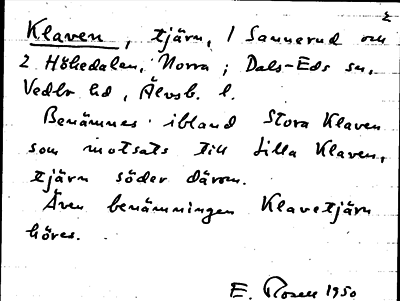 2
Klaven, tjärn, 1 Sannerud och
2 Höhedalen, Norra; Dals-Eds sn,
Vedbo hd, Älvsb. l.
Benämnes ibland Stora Klaven
som motsats till Lilla Klaven,
tjärn söder därom.
Även benämningen Klavetjärn
höres.
E. Rosell 1950